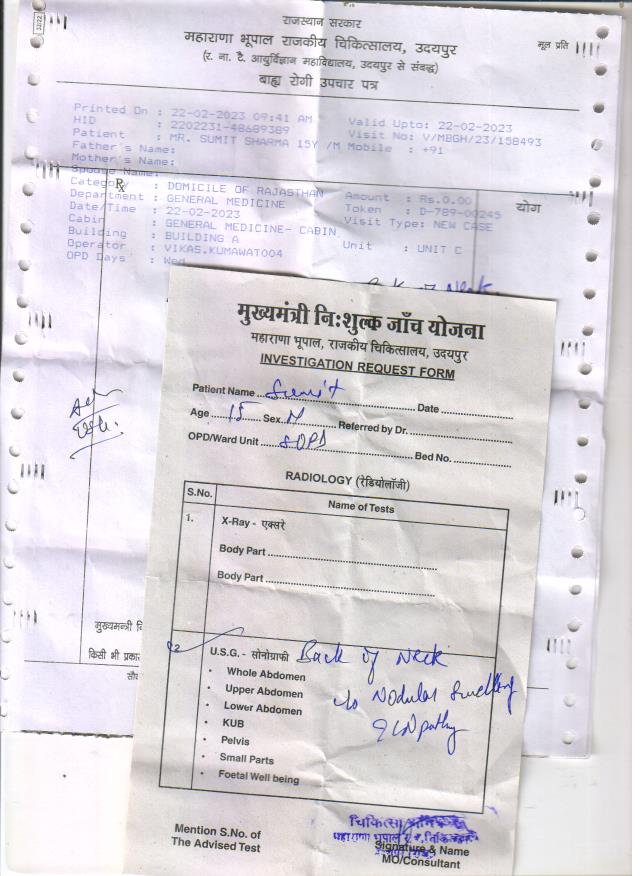 राजस्थान सरकार
महाराणा भूपाल राजकीय चिकित्सालय, उदयपुर
मूल प्रति
(र. ना. टै. आयुर्विज्ञान महाविद्यालय, उदयपुर से संबद्ध)
बाह्य रोगी उपचार पत्र
Printed On : 22-02-2023 09:41 AM
Valid Upto: 22-02-2023
HID : 2202231-48689389
Visit No: V/MBGH/23/158493
Patient : MR. SUMIT SHARMA 15Y /M Mobile : +91
Father's Name:
Mother's Name:
Spouse Name:
Rx
Category : DOMICILE OF RAJASTHAN
Amount : Rs.0.00
योग
Department : GENERAL MEDICINE
Token : D-789-00245
Date/Time : 22-02-2023
Visit Type: NEW CASE
Cabin : GENERAL MEDICINE- CABIN
Building : BUILDING A
Unit : UNIT C
Operator : VIKAS.KUMAWAT004
OPD Days : Wed
Back of Neck
मुख्यमंत्री निःशुल्क जाँच योजना
महाराणा भूपाल, राजकीय चिकित्सालय, उदयपुर
INVESTIGATION REQUEST FORM
Patient Name Sumit Date
Age 15 Sex M Referred by Dr.
OPD/Ward Unit SOPD Bed No.
RADIOLOGY (रेडियोलॉजी)
S.No. Name of Tests
1. X-Ray - एक्सरे
Body Part
Body Part
मुख्यमन्त्री
किसी भी प्रका
2 U.S.G. - सोनोग्राफी Back of Neck
• Whole Abdomen
• Upper Abdomen
Nodular Swelling
• Lower Abdomen
• KUB
• Pelvis
• Small Parts
• Foetal Well being
चिकित्सा
महाराणा भूपाल
Mention S.No. of
The Advised Test
Signature & Name
MO/Consultant